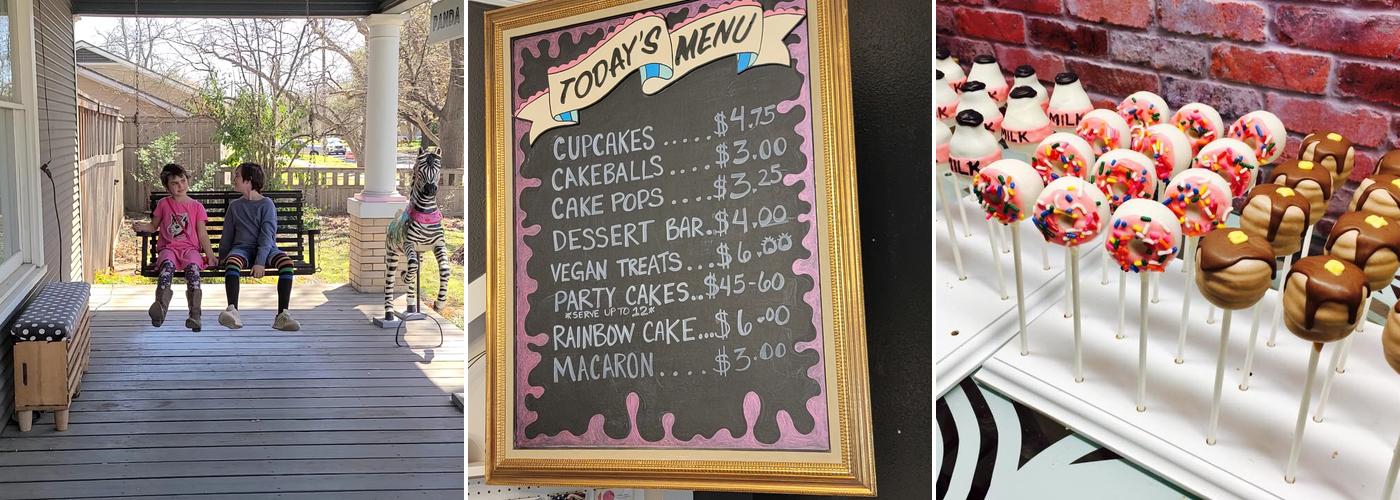 PANDA
TODAY'S MENU
CUPCAKES.....$4.75
CAKEBALLS....$3.00
CAKE POPS....$3.25
DESSERT BAR.$4.00
VEGAN TREATS...$6.00
PARTY CAKES..$45-60
*SERVE UP TO 12*
RAINBOW CAKE...$6.00
MACARON.....$3.00
MILK
MILK
MILK